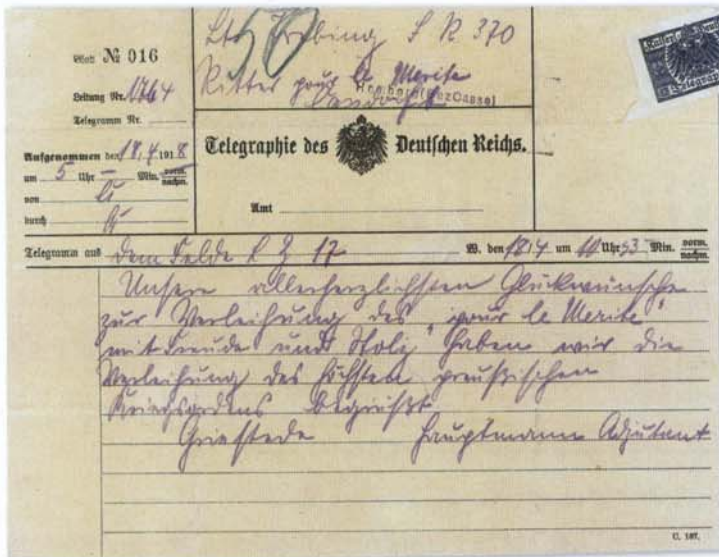 Blatt № 016
Leitung Nr. 1764
Telegramm Nr.
Aufgenommen den 18/4 1918
um 5 Uhr — Min. vorm. nachm.
von
durch
Ltn S R 370
50
Ritter pour le Merite
Homberg (Bez Cassel)
Telegraphie des Deutschen Reichs.
Amt
Telegramm aus dem Felde L 3 17 W. den 18/4 um 10 Uhr 53 Min. vorm. nachm.
Unsere allerherzlichsten Glückwünsche
zur Verleihung des "pour le Merite"
mit Freude und Stolz haben wir die
Verleihung des höchsten preußischen
Kriegsordens begrüßt
Griefstede Hauptmann Adjutant
C. 187.